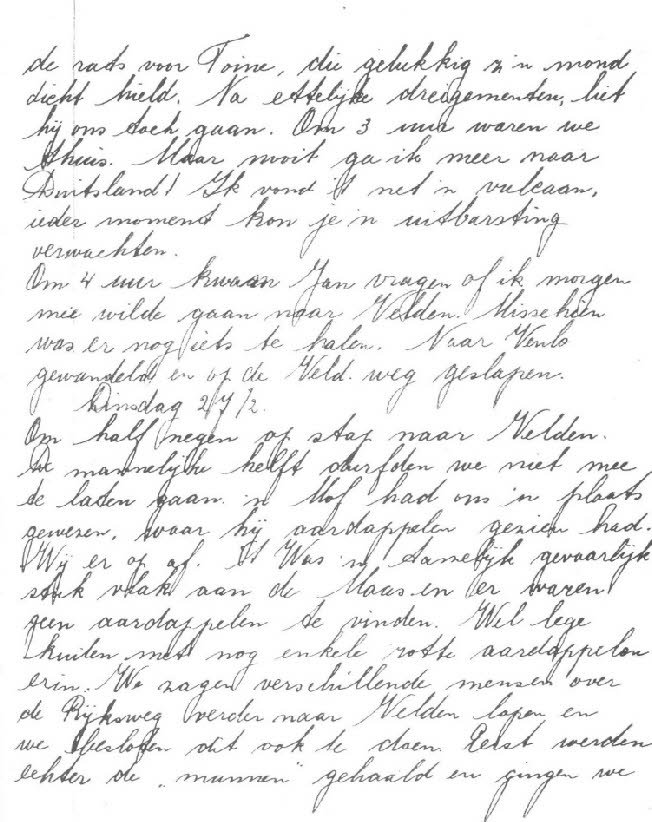 de rats voor Toine, die gelukkig z'n mond
dicht hield. Na ettelijke dreegementen, liet
hij ons toch gaan. Om 3 uur waren we
thuis. Maar nooit ga ik meer naar
Duitsland! Ik vond 't net 'n vulcaan,
ieder moment kon je 'n uitbarsting
verwachten.
Om 4 uur kwam Jan vragen of ik morgen
mee wilde gaan naar Velden. Misschien
was er nog iets te halen. Naar Venlo
gewandeld en op de Veld. weg geslapen.
Dinsdag 27/2.
Om half negen op stap naar Velden.
De mannelijke helft durfden we niet mee
te laten gaan. 'n Mof had ons 'n plaats
gewezen, waar hij aardappelen gezien had.
Wij er op af. 't Was 'n tamelijk gevaarlijk
stuk vlak aan de Maas en er waren
geen aardappelen te vinden. Wel lege
kuilen met nog enkele rotte aardappelen
erin. We zagen verschillende mensen over
de Rijksweg verder naar Velden lopen en
we besloten dit ook te doen. Eerst werden
echter de "mannen" gehaald en gingen we